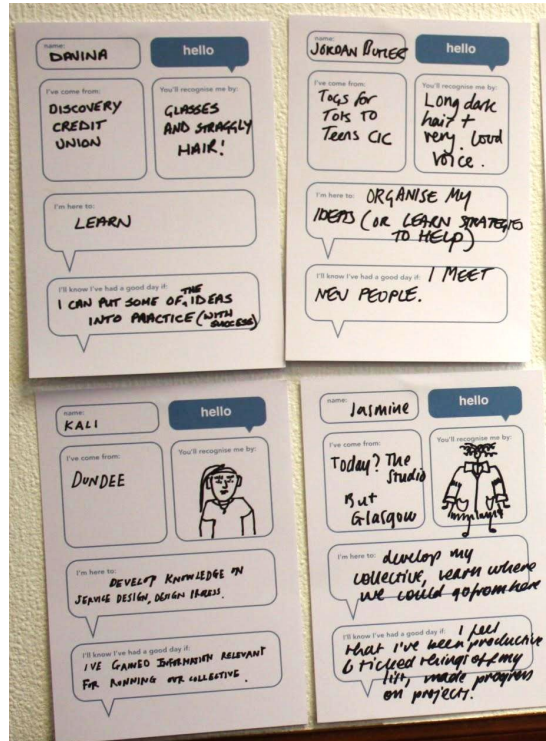 name:
DAVINA
hello
I've come from:
DISCOVERY
CREDIT
UNION
You'll recognise me by:
GLASSES
AND STRAGGLY
HAIR!
I'm here to:
LEARN
I'll know I've had a good day if:
I CAN PUT SOME OF THE IDEAS
INTO PRACTICE (WITH
SUCCESS)
name:
JORDAN BUTLER
hello
I've come from:
Togs for
Tots To
Teens CIC
You'll recognise me by:
Long dark
hair +
very loud
voice.
I'm here to: ORGANISE MY
IDEAS (OR LEARN STRATEGIES
TO HELP)
I'll know I've had a good day if: I MEET
NEW PEOPLE.
name:
KALI
hello
I've come from:
DUNDEE
You'll recognise me by:
I'm here to:
DEVELOP KNOWLEDGE ON
SERVICE DESIGN, DESIGN
I'll know I've had a good day if:
I'VE GAINED INFORMATION RELEVANT
FOR RUNNING OUR COLLECTIVE.
name:
Jasmine
hello
I've come from:
Today? The
Studio
But
Glasgow
You'll recognise me by:
I'm here to: develop my
collective, learn where
we could go from here
I'll know I've had a good day if: I feel
that I've been productive
& ticked things off my
list, made progress
on projects.